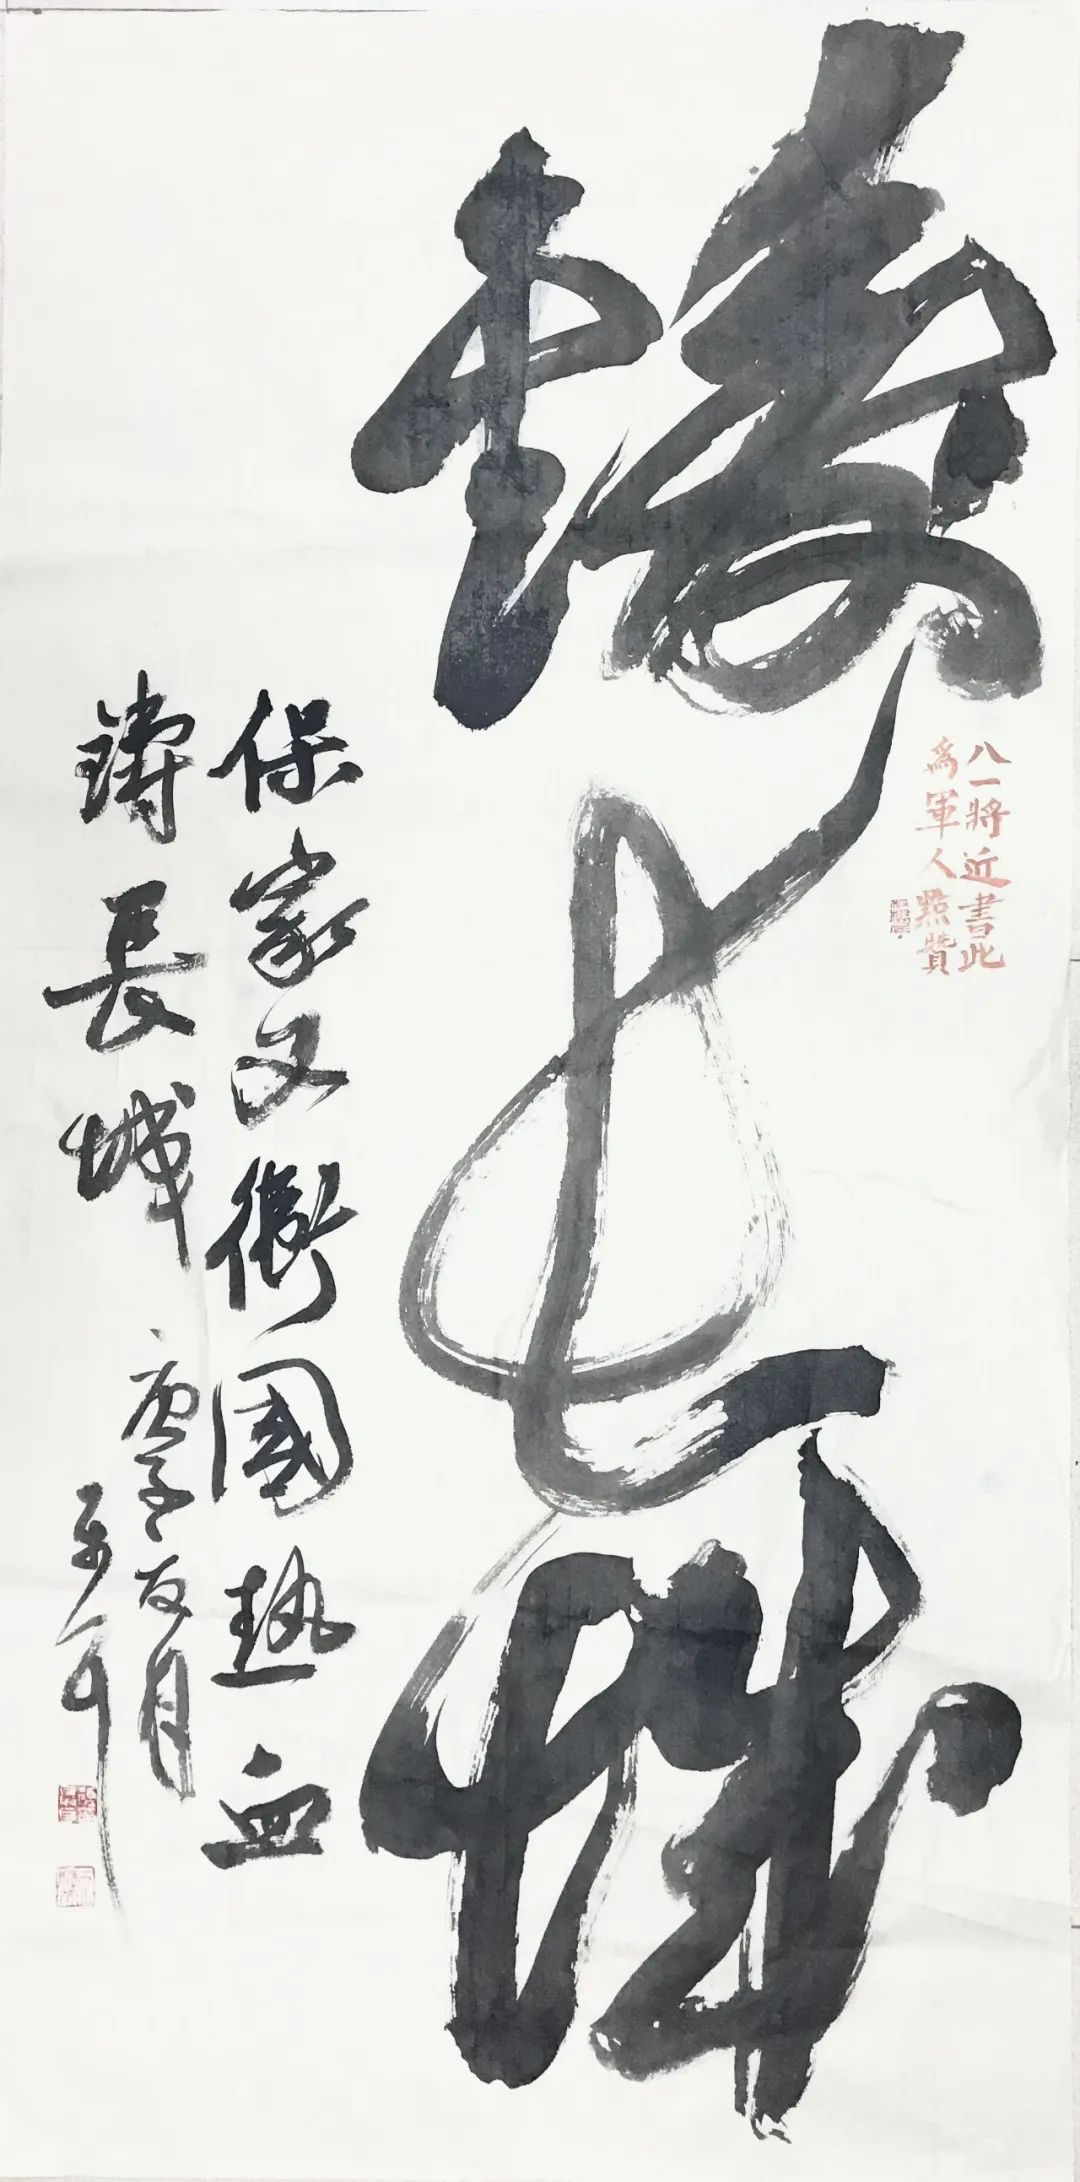 鑄長城
八一將近書此
為軍人點贊
保家又衛國熱血
鑄長城
庚子夏月